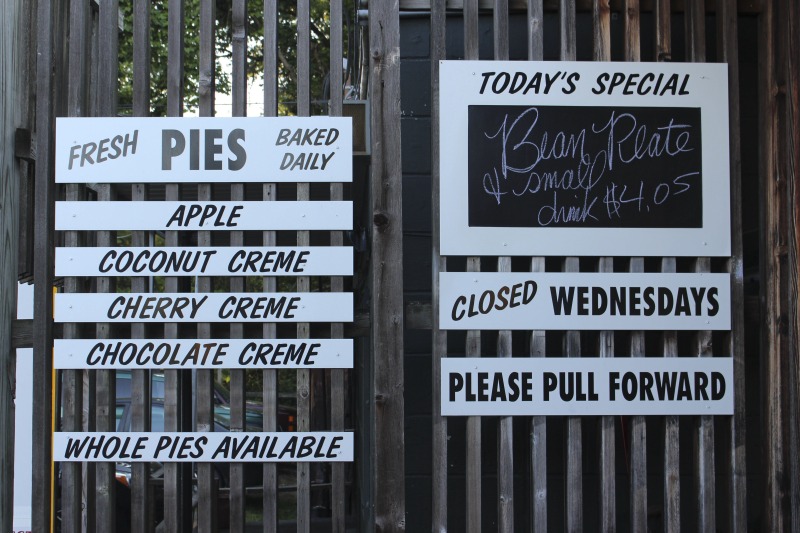 FRESH PIES BAKED DAILY
APPLE
COCONUT CREME
CHERRY CREME
CHOCOLATE CREME
WHOLE PIES AVAILABLE
TODAY'S SPECIAL
Bean Plate
& small
drink $4.05
CLOSED WEDNESDAYS
PLEASE PULL FORWARD